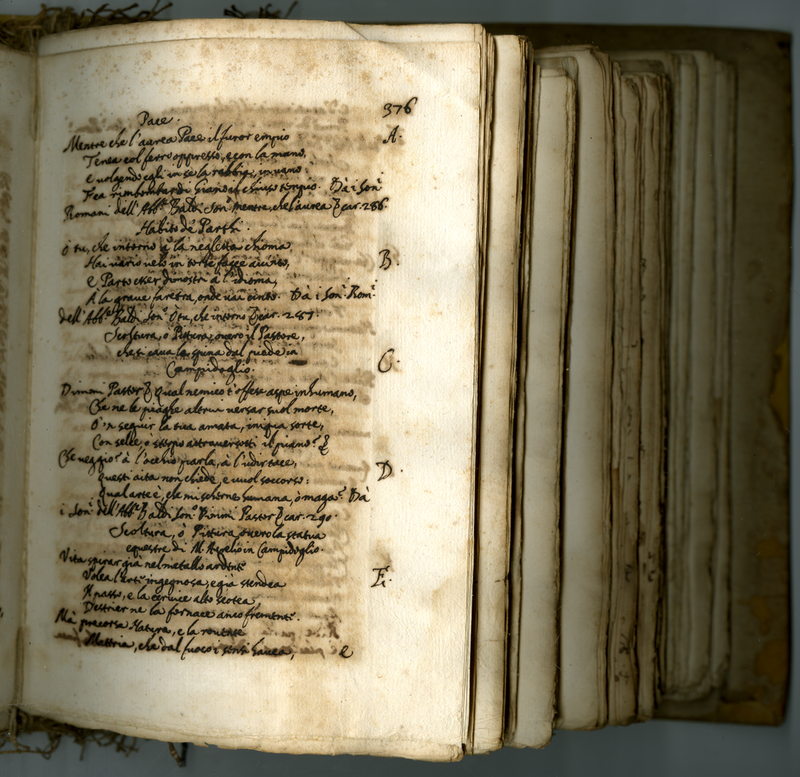 376
Pace.
A.
Mentre che l'aurea Pace il furor empio
Tenea col ferro oppresso, e con la mano,
e volgendo egli in se la rabbia, in vano
Fea rimbombar di Giano il chiuso tempio. Da i Son.
Romani dell'Abb.e Baldi Son. Mentre, che l'aurea car. 286.
Habito de Parthi.
O tu, che intorno a la negletta chioma
B.
Hai vario velo in torte fasce avinto,
e Parto esser dimostri à l'idioma,
A la grave faretra, onde vai cinto. Da i Son. Rom.
dell'Abb.e Baldi Son. O tu, che intorno car. 287.
Scoltura, ò Pittura, overo il Pastore,
che si cava la spina dal piede in
Campidoglio.
C.
Dimmi Pastor qual nemico t'offese aspe inhumano,
Che ne le piaghe altrui versar suol morte,
O'n seguir la tua amata, iniqua sorte,
Con selce, o sterpo attraversotti il piano?
Che neggio? à l'occhio parla, à l'udir tace,
D.
Questi aita non chiede, e vuol soccorso:
Qual arte è, che mi scherne humana, ò maga? Da
i Son. dell'Abb.e Baldi Son. Dimmi Pastor car. 290.
Scoltura, ò Pittura, overo la statua
equestre di M. Aurelio in Campidoglio.
Vita spirar già nel metallo ardente
E.
Volea l'arte ingegnosa, e già stendea
Il passo, e la cervice alto scotea
Destrier ne la fornace anco fremente.
Mà precorsa Natura, e la
Materia, che dal fuoco i sensi havea,
e